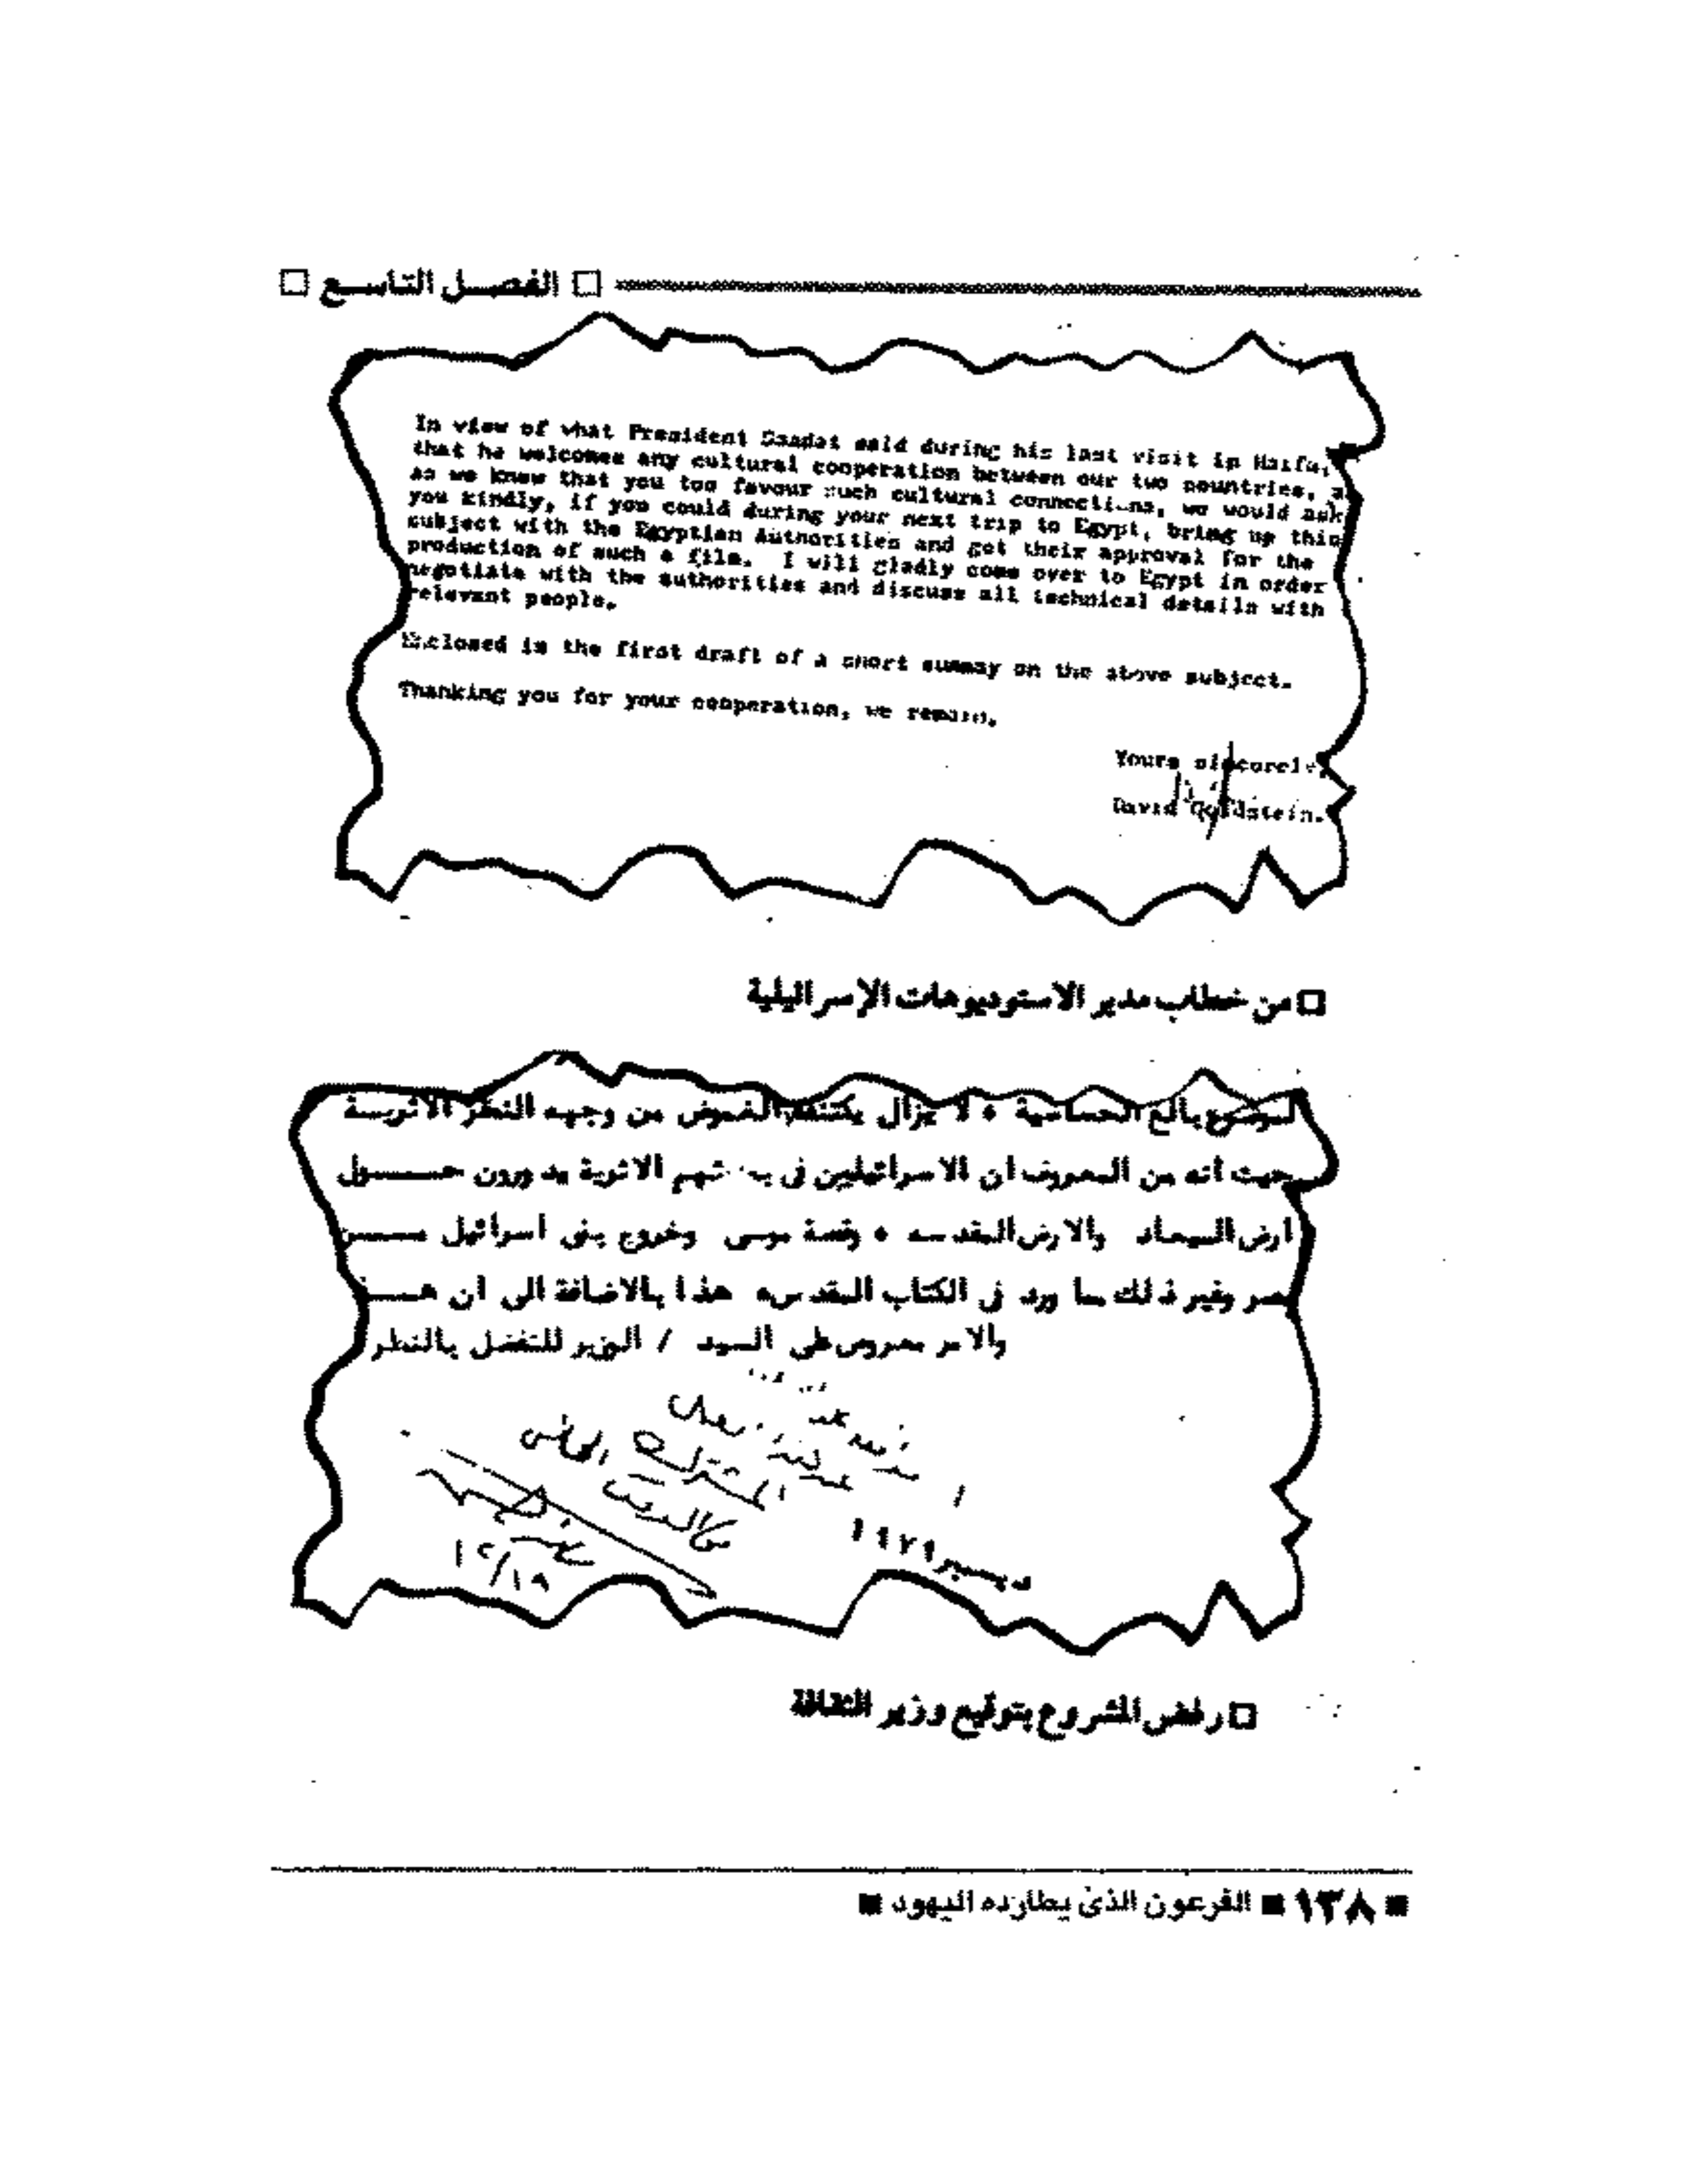 □ الفصل التاسع □
In view of what President Saadat said during his last visit in Haifa,
that he welcomes any cultural cooperation between our two countries,
as we know that you too favour such cultural connections, we would ask
you kindly, if you could during your next trip to Egypt, bring up this
subject with the Egyptian Authorities and get their approval for the
production of such a film. I will gladly come over to Egypt in order
negotiate with the authorities and discuss all technical details with
relevant people.
Enclosed is the first draft of a short summay on the above subject.
Thanking you for your cooperation, we remain,
Yours sincerely,
David Goldstein.
□ من خطاب مدير الاستوديوهات الإسرائيلية
الموضوع بالغ الحساسية ٠ لا يزال يكتنفه الغموض من وجهه النظر الاثريسة
حيث أنه من المعروف ان الاسرائيليين فى الاثرية يد ورون حــــول
أرض الميعاد والارض المقدسه ٠ وقصة موسى وخروج بنى اسرائيل مــــن
مصر وغير ذلك مما ورد فى الكتاب المقدس٠ هذا بالاضافة الى ان
والامر معروض على السيد / الوزير للتفضل بالنظر
ديسمبر ١٩٧٩
١٢/١٩
□ رفض المشروع بتوقيع وزير الثقافة
■ ١٣٨ ■ الفرعون الذى يطارده اليهود ■